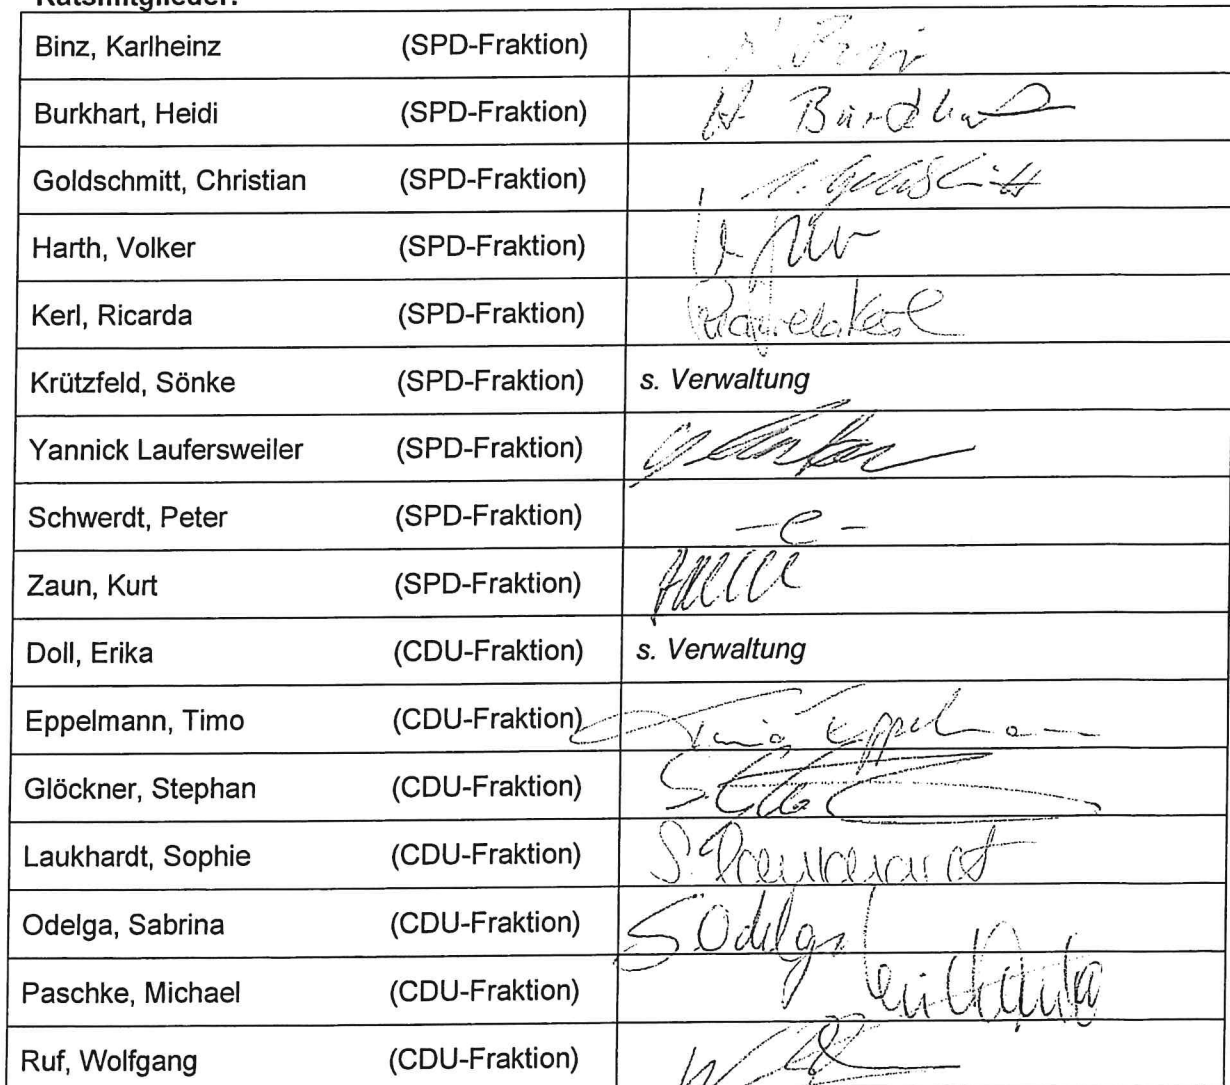 Ratsmitglieder:
Binz, Karlheinz (SPD-Fraktion)
Burkhart, Heidi (SPD-Fraktion) H. Burkhart
Goldschmitt, Christian (SPD-Fraktion)
Harth, Volker (SPD-Fraktion)
Kerl, Ricarda (SPD-Fraktion) Ricarda Kerl
Krützfeld, Sönke (SPD-Fraktion) s. Verwaltung
Yannick Laufersweiler (SPD-Fraktion)
Schwerdt, Peter (SPD-Fraktion) -e-
Zaun, Kurt (SPD-Fraktion)
Doll, Erika (CDU-Fraktion) s. Verwaltung
Eppelmann, Timo (CDU-Fraktion) Timo Eppelmann
Glöckner, Stephan (CDU-Fraktion)
Laukhardt, Sophie (CDU-Fraktion) S. Laukhardt
Odelga, Sabrina (CDU-Fraktion) S Odelga
Paschke, Michael (CDU-Fraktion)
Ruf, Wolfgang (CDU-Fraktion)